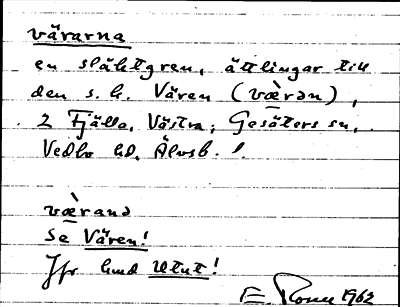 värarna
en släktgren, ättlingar till
den s. k. Vären (væ̀rən),
2 Fjälla, Västra, Gesäters sn,
Vedbo hd, Älvsb. l.
væ̀rand
Se Vären!
Jfr Utut!
E. 1962